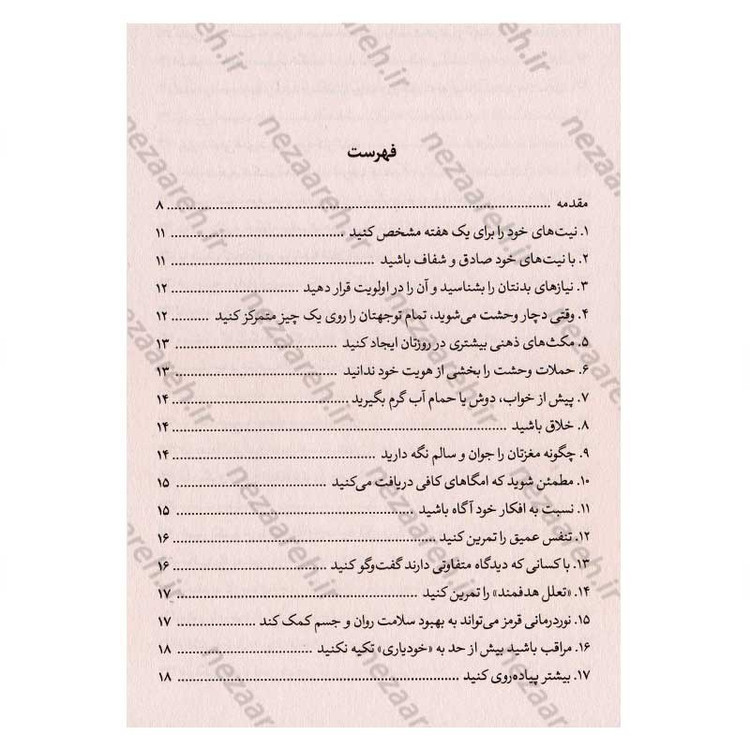 فهرست
مقدمه ........ ۸
۱. نیت‌های خود را برای یک هفته مشخص کنید ........ ۱۱
۲. با نیت‌های خود صادق و شفاف باشید ........ ۱۱
۳. نیازهای بدنتان را بشناسید و آن را در اولویت قرار دهید ........ ۱۲
۴. وقتی دچار وحشت می‌شوید، تمام توجهتان را روی یک چیز متمرکز کنید ........ ۱۲
۵. مکث‌های ذهنی بیشتری در روزتان ایجاد کنید ........ ۱۳
۶. حملات وحشت را بخشی از هویت خود ندانید ........ ۱۳
۷. پیش از خواب، دوش یا حمام آب گرم بگیرید ........ ۱۴
۸. خلاق باشید ........ ۱۴
۹. چگونه مغزتان را جوان و سالم نگه دارید ........ ۱۴
۱۰. مطمئن شوید که امگاهای کافی دریافت می‌کنید ........ ۱۵
۱۱. نسبت به افکار خود آگاه باشید ........ ۱۵
۱۲. تنفس عمیق را تمرین کنید ........ ۱۶
۱۳. با کسانی که دیدگاه متفاوتی دارند گفت‌وگو کنید ........ ۱۶
۱۴. «تعلل هدفمند» را تمرین کنید ........ ۱۷
۱۵. نوردرمانی قرمز می‌تواند به بهبود سلامت روان و جسم کمک کند ........ ۱۷
۱۶. مراقب باشید بیش از حد به «خودیاری» تکیه نکنید ........ ۱۸
۱۷. بیشتر پیاده‌روی کنید ........ ۱۸
nezaareh.ir